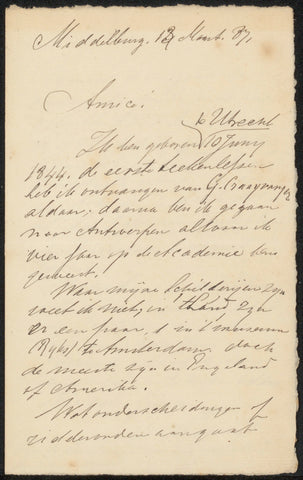 Middelburg. 13 Maart. 87,
Amice!
te Utrecht
Ik ben geboren 15 Juny
1844. de eerste teekenlessen
heb ik ontvangen van G. Craayvanger
aldaar; daarna ben ik gegaan
naar Antwerpen alwaar ik
vier jaar op de Academie ben
geweest.
Waar mijne schilderijen zijn
weet ik niet, in
er een paar, 1 in 't museum
te Amsterdam, doch
de meeste zijn in Engeland
of Amerika.
Wat onderscheidingen of
ridderorden aangaat